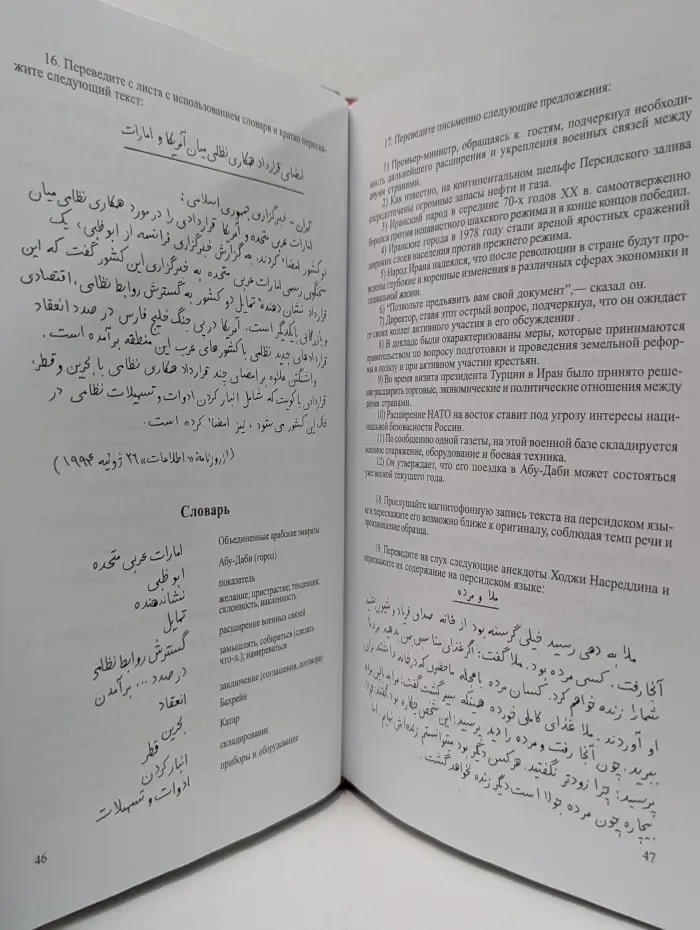 16. Переведите с листа с использованием словаря и кратко переска-
жите следующий текст:
امضای قرارداد همکاری نظامی میان آمریکا و امارات
تهران - خبرگزاری جمهوری اسلامی:
امارات عربی متحده و آمریکا قراردادی را در مورد همکاری نظامی میان
دو کشور امضاء کردند. به گزارش خبرگزاری فرانسه از ابوظبی، یک
سخنگوی رسمی امارات عربی متحده به خبرگزاری این کشور گفت که این
قرارداد نشان دهندهٔ تمایل دو کشور به گسترش روابط نظامی، اقتصادی
و بازرگانی با یکدیگر است. آمریکا در پی جنگ خلیج فارس در صدد انعقاد
قراردادهای جدید نظامی با کشورهای عرب این منطقه برآمده است.
واشنگتن علاوه بر امضای چند قرارداد همکاری نظامی با بحرین و قطر،
قراردادی با کویت که شامل انبار کردن ادوات و تسهیلات نظامی در
خاک این کشور می شود، نیز امضاء کرده است.
(از روزنامهٔ «اطلاعات» ۲۶ ژوئیه ۱۹۹۴)
Словарь
امارات عربی متحده Объединенные арабские эмираты
ابوظبی Абу-Даби (город)
نشاندهنده показатель
تمایل желание, пристрастие; тенденция,
склонность, наклонность
گسترش روابط نظامی расширение военных связей
در صدد ... برآمدن замышлять, собираться (сделать
что-л.); намереваться
انعقاد заключение (соглашения, договора)
بحرین Бахрейн
قطر Катар
انبار کردن складирование
ادوات و تسهیلات приборы и оборудование
46
17. Переведите письменно следующие предложения:
1) Премьер-министр, обращаясь к гостям, подчеркнул необходи-
мость дальнейшего расширения и укрепления военных связей между
двумя странами.
2) Как известно, на континентальном шельфе Персидского залива
сосредоточены огромные запасы нефти и газа.
3) Иранский народ в середине 70-х годов XX в. самоотверженно
боролся против ненавистного шахского режима и в конце концов победил.
4) Иранские города в 1978 году стали ареной яростных сражений
широких слоев населения против прежнего режима.
5) Народ Ирана надеялся, что после революции в стране будут про-
ведены глубокие и коренные изменения в различных сферах экономики и
социальной жизни.
6) “Позвольте предъявить вам свой документ”,— сказал он.
7) Директор, ставя этот острый вопрос, подчеркнул, что он ожидает
от своих коллег активного участия в его обсуждении .
8) В докладе были охарактеризованы меры, которые принимаются
правительством по вопросу подготовки и проведения земельной рефор-
мы в пользу и при активном участии крестьян.
9) Во время визита президента Турции в Иран было принято реше-
ние расширить торговые, экономические и политические отношения между
двумя странами.
10) Расширение НАТО на восток ставит под угрозу интересы наци-
ональной безопасности России.
11) По сообщению одной газеты, на этой военной базе складируется
военное снаряжение, оборудование и боевая техника.
12) Он утверждает, что его поездка в Абу-Даби может состояться
уже весной текущего года.
18. Прослушайте магнитофонную запись текста на персидском язы-
ке и перескажите его возможно ближе к оригиналу, соблюдая темп речи и
произношение образца.
19. Переведите на слух следующие анекдоты Ходжи Насреддина и
перескажите их содержание на персидском языке:
ملا و مرده
ملا به دهی رسید خیلی گرسنه بود از خانه صدای فریاد و شیون شنید
آنجا رفت. کسی مرده بود. ملا گفت: اگر غذای مناسبی من بدهید مردهٔ
شما را زنده خواهم کرد. کسان مرده با عجله ماحضری که در خانه داشتند برای
او آوردند. ملا غذای کاملی خورده همینکه سیر گشت گفت: مرا به بالین مرده
ببرید. چون آنجا رفت و مرده را دید پرسید: این شخص چکاره بود. گفتند: جولا.
پرسید: چرا زودتر نگفتید. هر کس دیگر بود میتوانستم زنده اش نمایم اما
بیچاره چون مرده جولا است دیگر زنده نخواهد گشت.
47